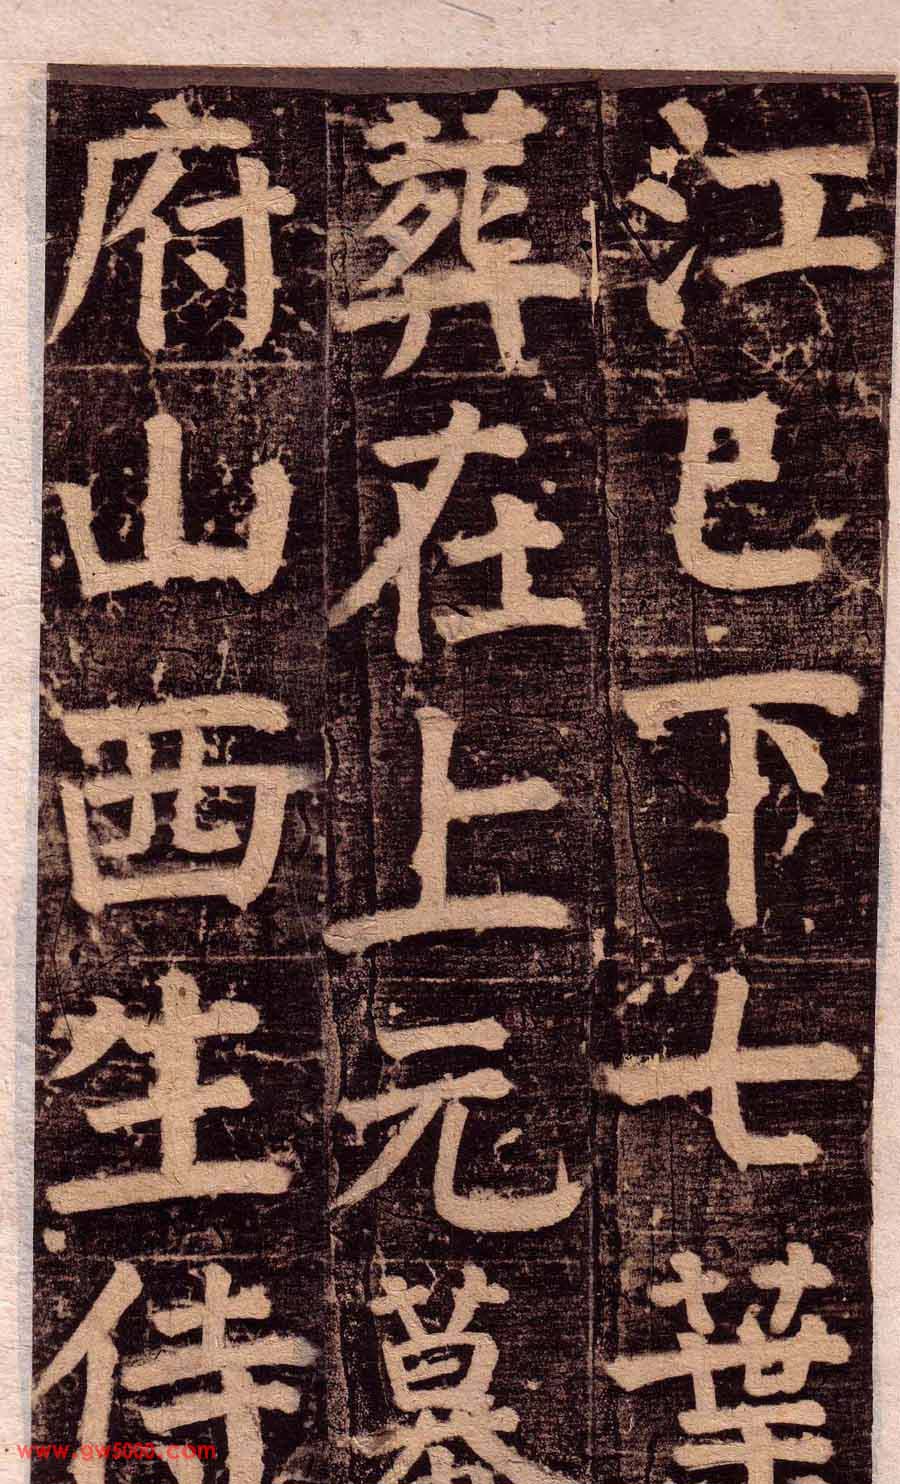 江巳下七葉
葬在上元幕
府山西生侍
www.gw5000.com